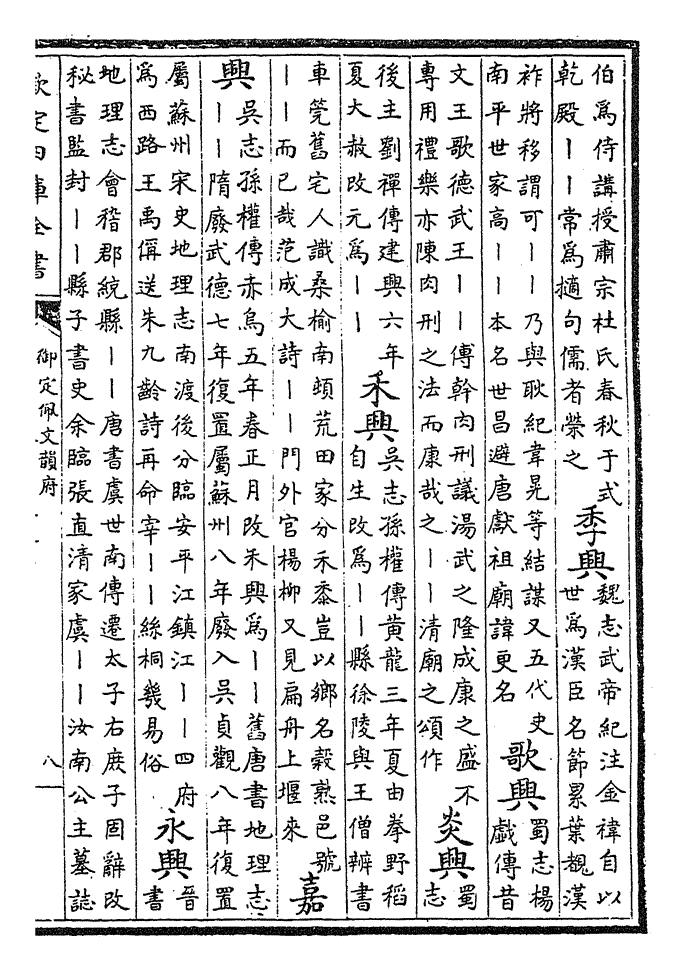 伯爲侍講授肅宗杜氏春秋于式
乾殿｜｜常爲擿句儒者榮之
季興
魏志武帝紀注金禕自以
世爲漢臣名節累葉覩漢
祚將移謂可｜｜乃與耿紀韋晃等結謀又五代史
南平世家高｜｜本名世昌避唐獻祖廟諱更名
歌興
蜀志楊
戲傳昔
文王歌德武王｜｜傅幹肉刑議湯武之隆成康之盛不
專用禮樂亦陳肉刑之法而康哉之｜｜清廟之頌作
炎興
蜀
志
後主劉禪傳建興六年
夏大赦改元爲｜｜
禾興
吳志孫權傳黃龍三年夏由拳野稻
自生改爲｜｜縣徐陵與王僧辨書
車莞舊宅人識桑榆南頓荒田家分禾黍豈以鄉名穀熟邑號
｜｜而已哉范成大詩｜｜門外官楊柳又見扁舟上堰來
嘉
興
吳志孫權傳赤烏五年春正月改禾興爲｜｜舊唐書地理志
｜｜隋廢武德七年復置屬蘇州八年廢入吳貞觀八年復置
屬蘇州宋史地理志南渡後分臨安平江鎮江｜｜四府
爲西路王禹偁送朱九齡詩再命宰｜｜絲桐幾易俗
永興
晉
書
地理志會稽郡統縣｜｜唐書虞世南傳遷太子右庶子固辭改
秘書監封｜｜縣子書史余臨張直清家虞｜｜汝南公主墓誌
欽定四庫全書
御定佩文韻府
八